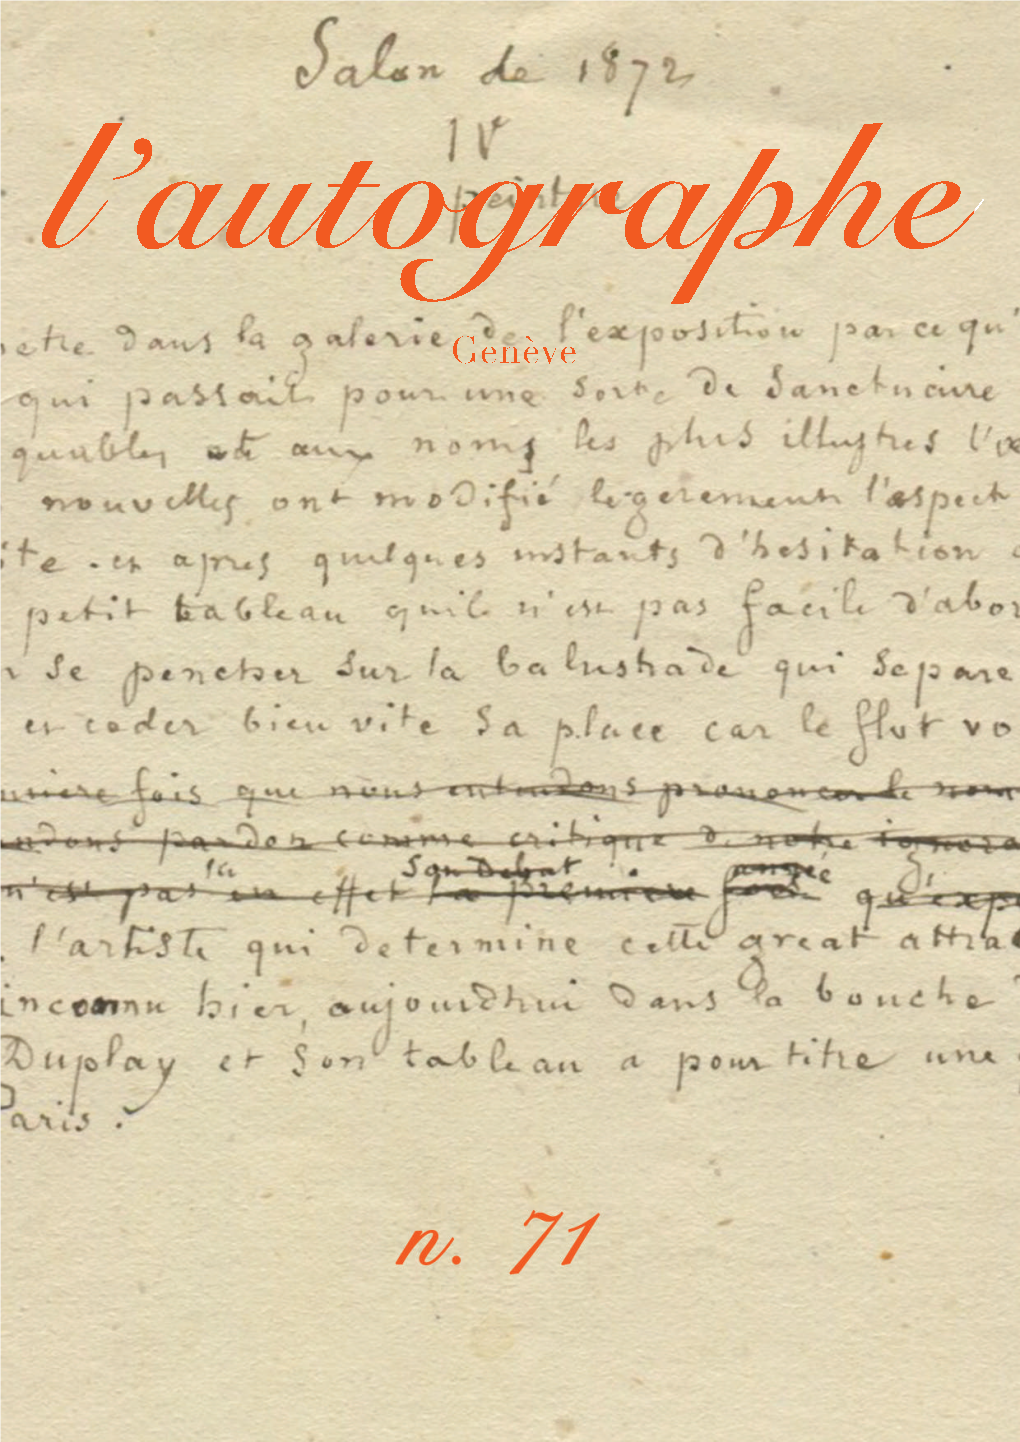 Salon de 1872
IV
l'autographe
peinture
dans la galerie de l'exposition par ce qu'
Genève
qui passait pour une sorte de Sanctuaire
quables et aux noms les plus illustres l'
nouvelles ont modifié legerement l'aspect
. et apres quelques instants d'hesitation
petit tableau qu'il n'est pas facile d'abor
se pencher sur la balustrade qui separe
et ceder bien vite sa place car le flot vo
fois que nous entendons prononcer le nom
pardon comme critique de notre ignora
la son debut année
n'est pas en effet la premiere fois qu'expo
l'artiste qui determine cette great attra
inconnu hier, aujourdhui dans la bouche
Duplay et Son tableau a pour titre une
Paris.
n. 71